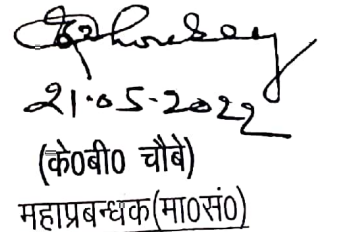 21.05.2022
(के0बी0 चौबे)
महाप्रबन्धक(मा0सं0)